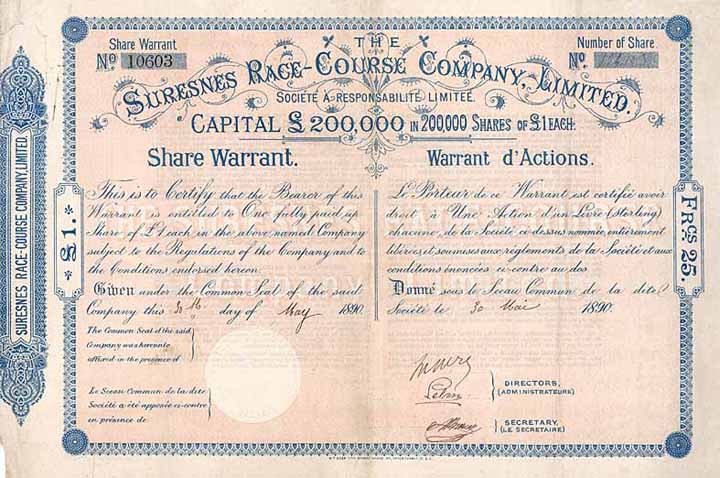 Share Warrant
No 10603
Number of Share
No.
THE
SURESNES RACE-COURSE COMPANY, LIMITED.
SOCIÉTÉ À RESPONSABILITÉ LIMITÉE.
CAPITAL £200,000 IN 200,000 SHARES OF £1 EACH.
Share Warrant.
This is to Certify that the Bearer of this
Warrant is entitled to One fully paid up
Share of £1 each in the above named Company
subject to the Regulations of the Company and to
the Conditions endorsed hereon.
Given under the Common Seal of the said
Company this 30th day of May 1890.
The Common Seal of the said
Company was hereunto
affixed in the presence of
Le Sceau Commun de la dite
Société a été apposée ci-contre
en présence de
Warrant d'Actions.
Le Porteur de ce Warrant est certifié avoir
droit à Une Action d'un Livre (Sterling)
chacune, de la Société ci-dessus nommée, entièrement
libérées et soumises aux règlements de la Société et aux
conditions énoncées ci-contre au dos
Donné sous le Sceau Commun de la dite
Société le 30 Mai 1890.
DIRECTORS,
(ADMINISTRATEURS)
SECRETARY,
(LE SECRETAIRE)
£1.
FRCS 25.
SURESNES RACE-COURSE COMPANY, LIMITED.